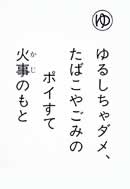 ゆ
ゆるしちゃダメ、
たばこやごみの
ポイすて
火事のもと
かじ